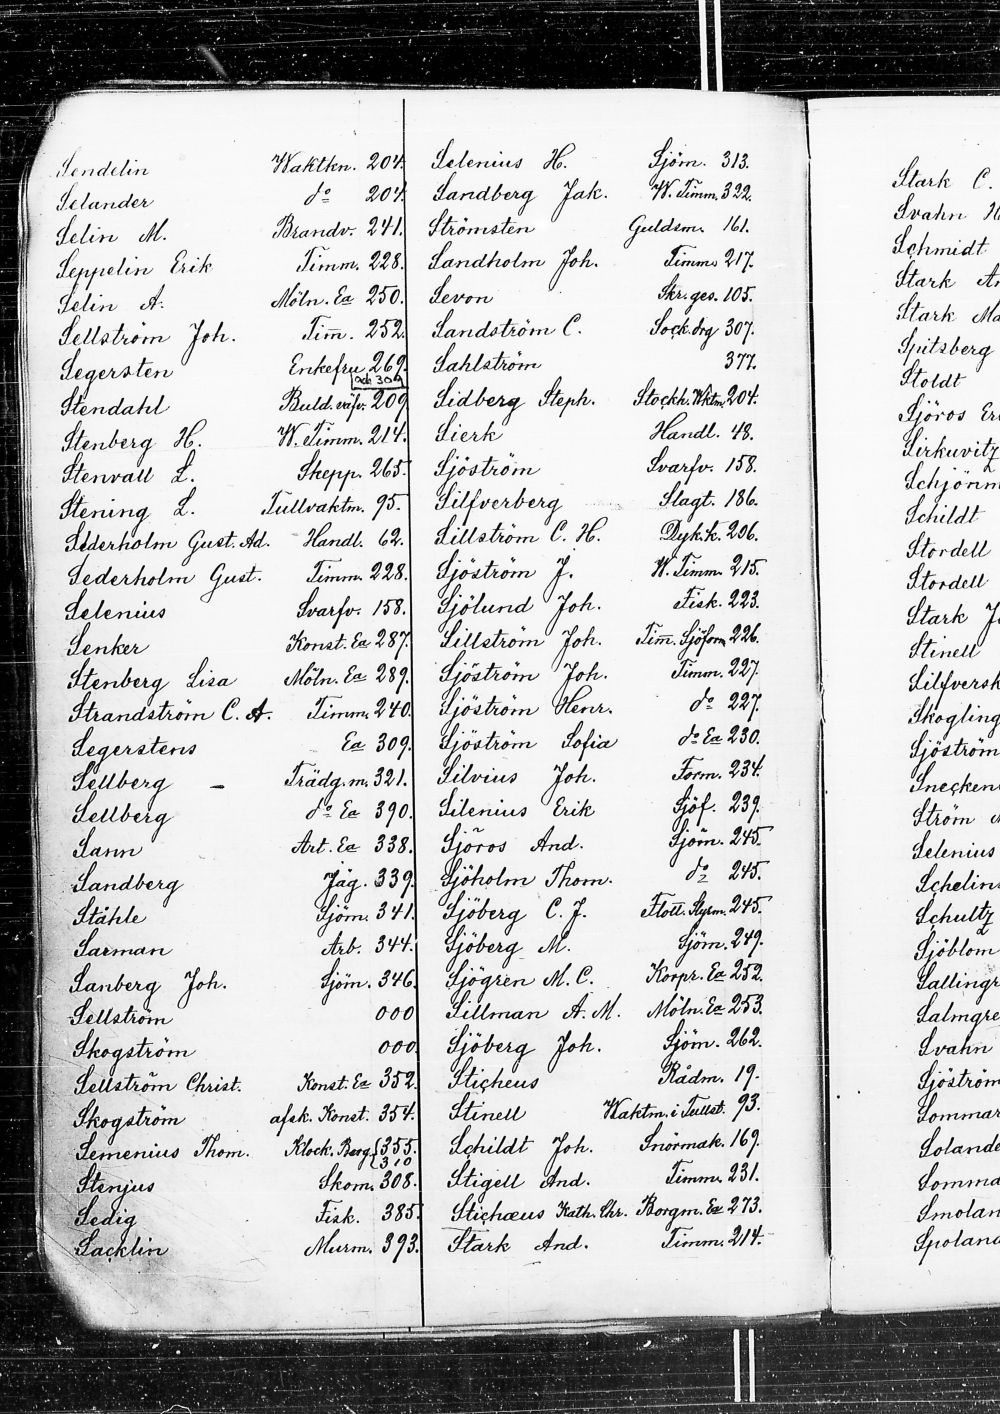 Sendelin Waktkn. 204.
Selander do 204.
Selin M. Brandv. 241.
Seppelin Erik Timm. 228.
Selin A. Möln. Ea 250.
Sellström Joh. Tim̅. 252.
Segersten Enkefru 269.
och 309
Stendahl Buld. väfv. 209
Stenberg H. W. Timm. 214.
Stenvall L. Skepp. 265.
Stening L. Tullvaktm. 95.
Sederholm Gust. Ad. Handl. 62.
Sederholm Gust. Timm. 228.
Selenius Svarfv. 158.
Senker Konst. Ea 287.
Stenberg Lisa Möln. Ea 289.
Strandström C. A. Timm. 240.
Segerstens Ea 309.
Sellberg – Trädg. m. 321.
Sellberg do Ea 390.
Sann Art. Ea 338.
Sandberg Jäg. 339.
Ståhle Sjöm. 341.
Sarman Arb. 344.
Sanberg Joh. Sjöm. 346.
Sellström 000
Skogström 000.
Sellström Christ. Konst. Ea 352.
Skogström afsk. Konst. 354.
Semenius Thom. Klock. Barg. {355.
310
Stenjus Skom. 308.
Sedig Fisk. 385.
Sacklin Murm. 393.
Selenius H. Sjöm. 313.
Sandberg Jak. W. Timm. 322.
Strömsten Guldsm. 161.
Sandholm Joh. Timm. 217.
Sevon Skr. ges. 105.
Sandström C. Sock. drg 307.
Sahlström 377.
Sidberg Steph. Stockh. Wktm. 204.
Sierk Handl. 48.
Sjöström Svarfv. 158.
Silfverberg Slagt. 186.
Sillström C. H. Dyk. k. 206.
Sjöström J. W. Timm. 215.
Sjölund Joh. Fisk. 223.
Sillström Joh. Tim̅. Sjöform 226.
Sjöström Joh. Timm. 227.
Sjöström Henr. do 227.
Sjöström Sofia do Ea 230.
Silvius Joh. Form. 234.
Silenius Erik Sjöf. 239.
Sjöros And. Sjöm. 245.
Sjöholm Thom. do 245.
Sjöberg C. J. Flott. Styrm. 245.
Sjöberg M. Sjöm. 249.
Sjögren M. C. Korpr. Ea 252.
Sillman A. M. Möln. Ea 253.
Sjöberg Joh. Sjöm. 262.
Sticheus Rådm. 19.
Stinell Waktm. i Tullst. 93.
Schildt Joh. Snörmak. 169.
Stigell And. Timm. 231.
Stichæus Kath. Chr. Borgm. Ea 273.
Stark And. Timm. 214.
Stark C.
Svahn H
Schmidt
Stark An
Stark Ma
Spitsberg
Stoldt
Sjöros Er
Sirkuvitz
Schjönm
Schildt
Stordell
Stordell
Stark J
Stinell
Silfversk
Skogling
Sjöström
Snecken
Ström
Selenius
Schelin
Schultz
Sjöblom
Sallingr
Salmgre
Svahn
Sjöström
Sommar
Solande
Somma
Smolan
Spoland